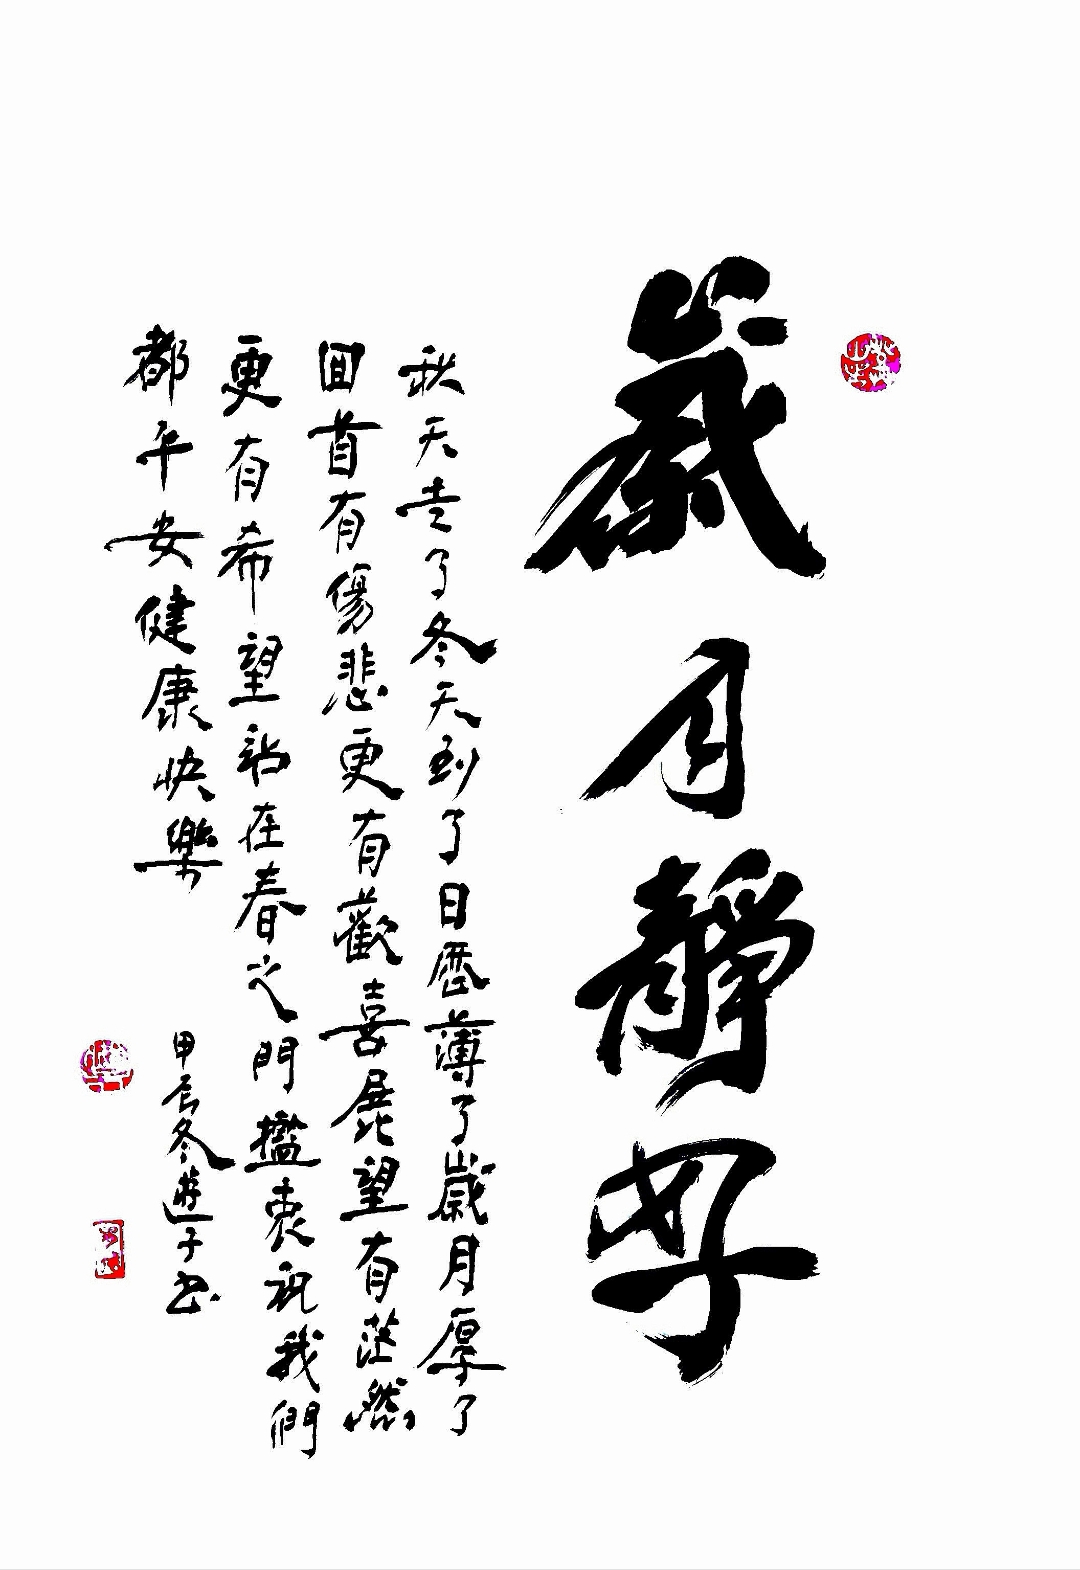 歲月靜好
秋天走了冬天到了日曆薄了歲月厚了
回首有傷悲更有歡喜展望有茫然
更有希望站在春之門檻衷祝我們
都平安健康快樂
甲辰冬遊子书